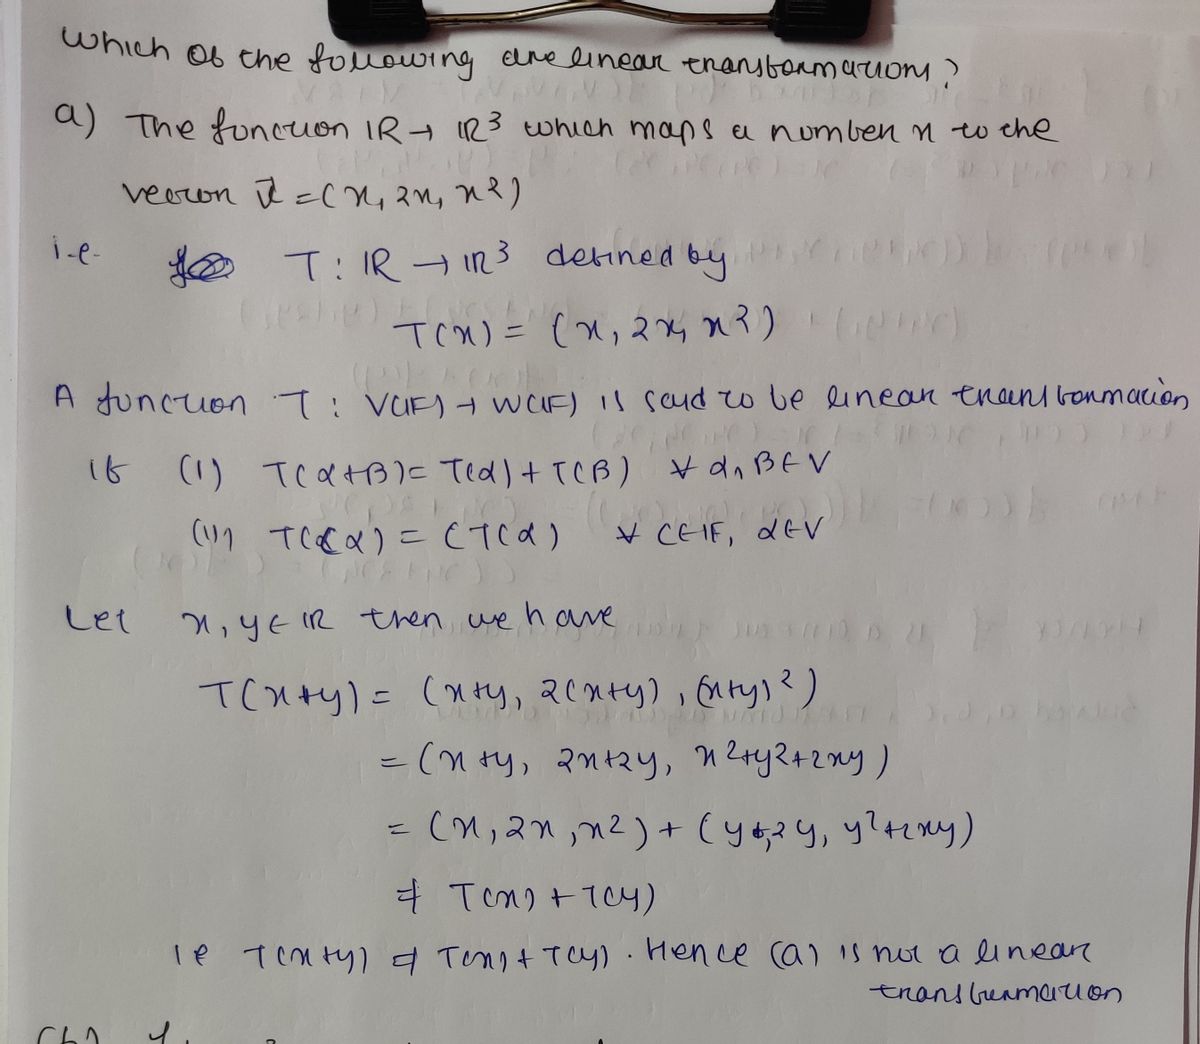 Which of the following are linear transformations?
a) The function IR → IR³ which maps a number x to the
vector v⃗ = (x, 2x, x²)
i.e. T : IR → IR³ defined by
T(x) = (x, 2x, x²)
A function T : V(IF) → W(IF) is said to be linear transformation
if (i) T(α+β) = T(α) + T(β) ∀ α, β ∈ V
(ii) T(cα) = cT(α) ∀ c ∈ IF, α ∈ V
Let x, y ∈ IR then we have
T(x+y) = (x+y, 2(x+y), (x+y)²)
= (x+y, 2x+2y, x²+y²+2xy)
= (x, 2x, x²) + (y, 2y, y²+2xy)
≠ T(x) + T(y)
ie T(x+y) ≠ T(x) + T(y). Hence (a) is not a linear
transformation
(b)